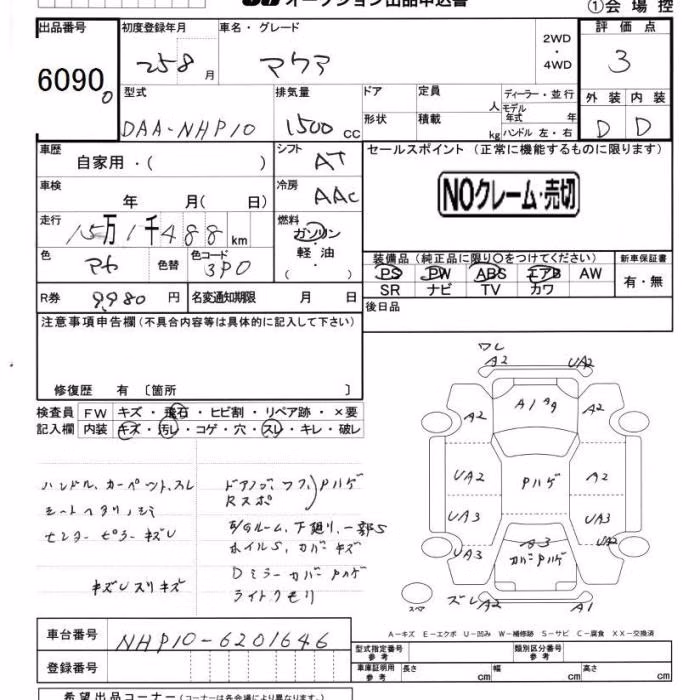 オークション出品申込書
①会場控
出品番号 初度登録年月 車名・グレード 2WD・4WD 評価点
6090 0 258月 アクア 3
型式 排気量 ドア 定員 人 ディーラー・並行 外装 内装
DAA-NHP10 1500 cc 形状 積載 kg モデル年式 年 ハンドル 左・右 D D
車歴 自家用・( ) シフト AT セールスポイント(正常に機能するものに限ります)
車検 年 月( 日) 冷房 AAC NOクレーム・売切
走行 15万1千488 km 燃料 ガソリン・軽油・( )
色 アカ 色替 色コード 3P0 装備品(純正品に限り○をつけてください) 新車保証書
PS PW ABS エアB AW 有・無
SR ナビ TV カワ
R券 9980 円 名変通知期限 月 日 後日品
注意事項申告欄(不具合内容等は具体的に記入して下さい)
修復歴 有 〔箇所 〕
検査員 FW キズ・飛石・ヒビ割・リペア跡・×要
記入欄 内装 キズ・汚レ・コゲ・穴・スレ・キレ・破レ
ハンドル、カーペット、スレ
シートヘタリ、シミ
センターピラーキズU
キズUスリキズ
Rスポ
E/Gルーム、下廻り、一部S
ホイルS、カバーキズ
Dミラーカバー Pハゲ
ライトクモリ
ワレ
A2 UA2
A2 A1 A2
UA2 Pハゲ A2
UA3 UA3
UA3 A3 UA2
カバーPハゲ
スペア ズレ UA2 A1
A-キズ E-エクボ U-凹み W-補修跡 S-サビ C-腐食 XX-交換済
車台番号 NHP10-6201646
登録番号
型式指定番号 参考 類別区分番号 参考
車庫証明用 参考 長さ cm 幅 cm 高さ cm
希望出品コーナー(コーナーは各会場により異なります。)